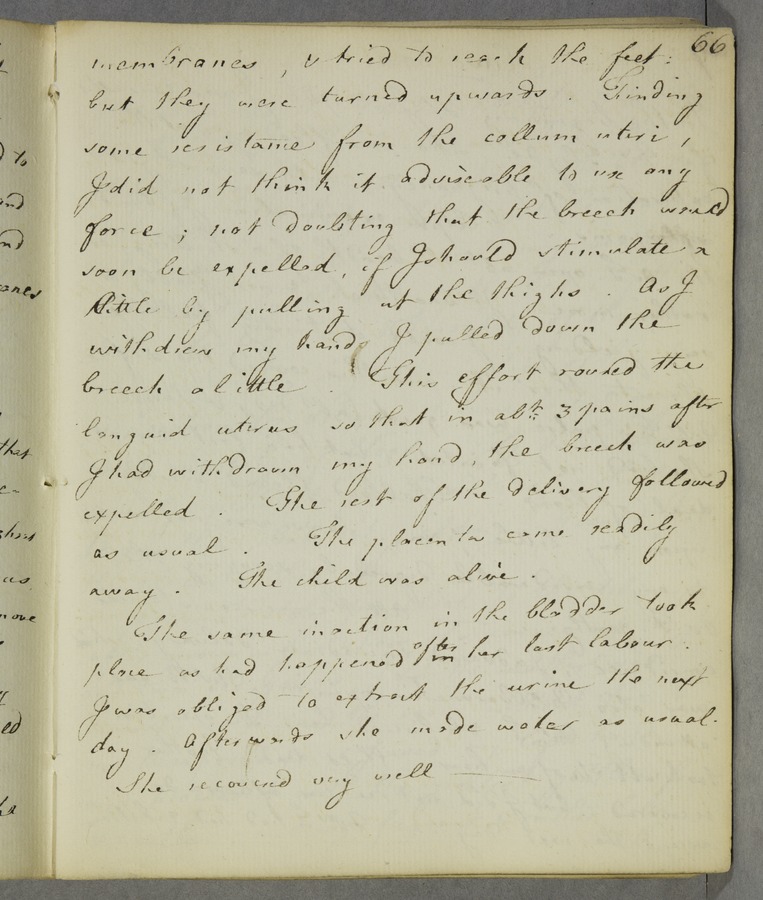 66
membranes, & tried to reach the feet:
but they were turned upwards. Finding
some resistance from the collum uteri,
I did not think it adviseable to use any
force; not doubting that the breech would
soon be expelled, if I should stimulate a
little by pulling at the thighs. As I
withdrew my hand I pulled down the
breech a little. This effort roused the
languid uterus so that in abt. 3 pains after
I had withdrawn my hand, the breech was
expelled. The rest of the delivery followed
as usual. The placenta came readily
away. The child was alive.
The same inaction in the bladder took
place as had happened after in her last labour.
I was obliged to extract the urine the next
day. Afterwards she made water as usual.
She recovered very well